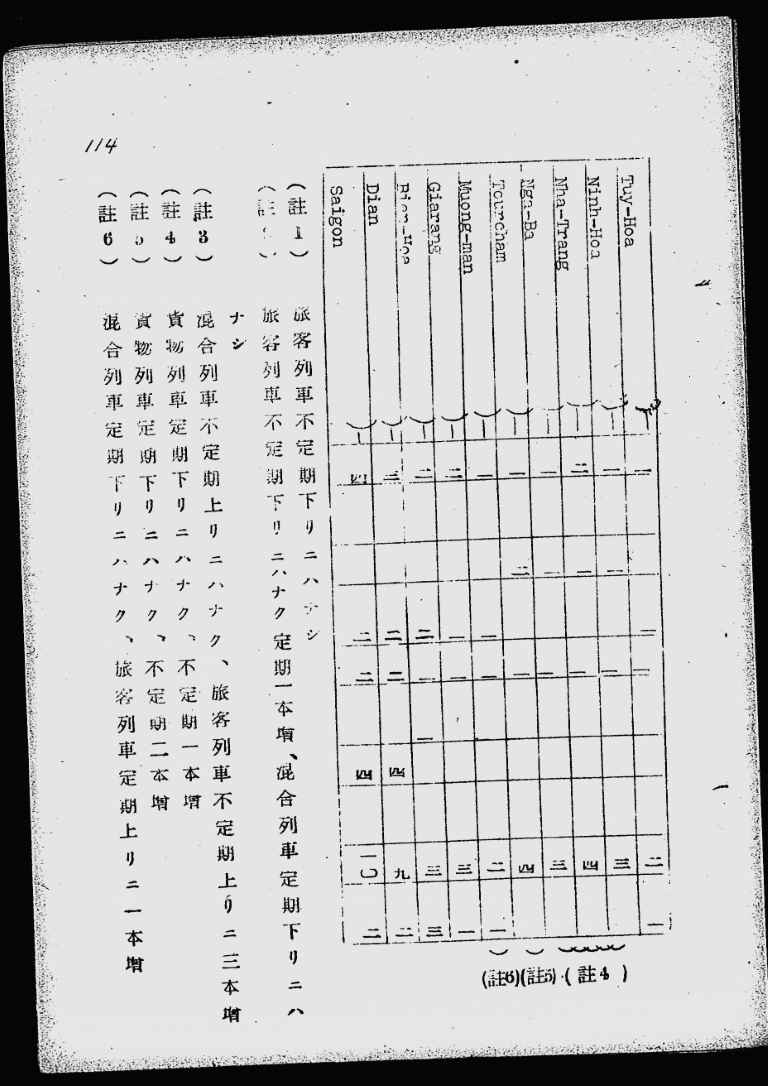 114
Tuy-Hoa
一
一
一
二
一
Ninh-Hoa
一
一
一
三
Nha-Trang
二
一
一
四
Nga-Ba
一
一
一
三
Tourcham
一
二
一
四
Muong-man
一
一
一
二
一
Giarang
二
一
一
三
一
Bien-Hoa
二
二
一
一
三
三
Dian
三
二
二
四
九
二
Saigon
四
二
二
四
一〇
二
(註4)
(註5)
(註6)
(註1) 旅客列車不定期下リニハナシ
旅客列車不定期下リニハナク定期一本増、混合列車定期下リニハ
ナシ
(註3) 混合列車不定期上リニハナク、旅客列車不定期上リニ三本増
(註4) 貨物列車定期下リニハナク、不定期一本増
(註5) 貨物列車定期下リニハナク、不定期二本増
(註6) 混合列車定期下リニハナク、旅客列車定期上リニ一本増